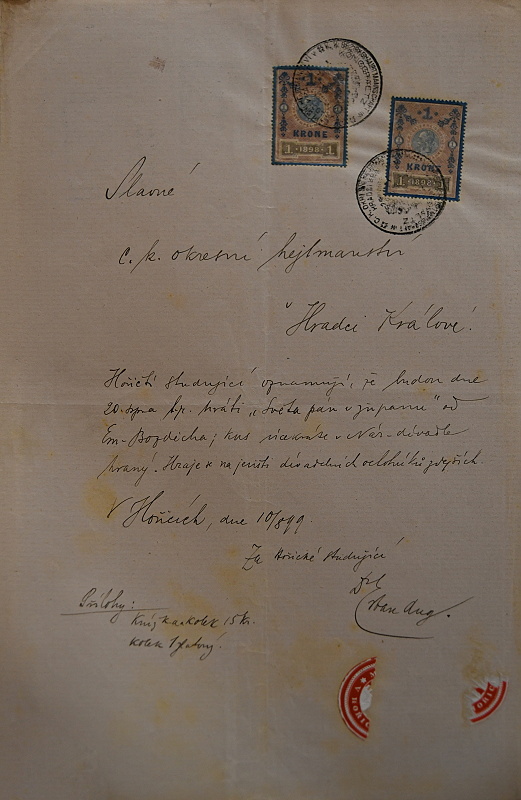 1
KRONE
1 1898 1
1
KRONE
1 1898 1
Slavné
c. k. okresní hejtmanství
v Hradci Králové.
Hořičtí studující oznamují, že budou dne
20. srpna t.r. hráti „Světa pán v županu" od
Em. Bozděcha; kus vícekráte v Nár. divadle
hraný. Hraje se na jevišti divadelních ochotníků zdejších.
V Hořicích, dne 10/8 99.
Za Hořické studující
Aug.
Přílohy:
Knížka a kolek 15 kr.
kolek 1 zlatový.
HOŘIC
HOŘIC